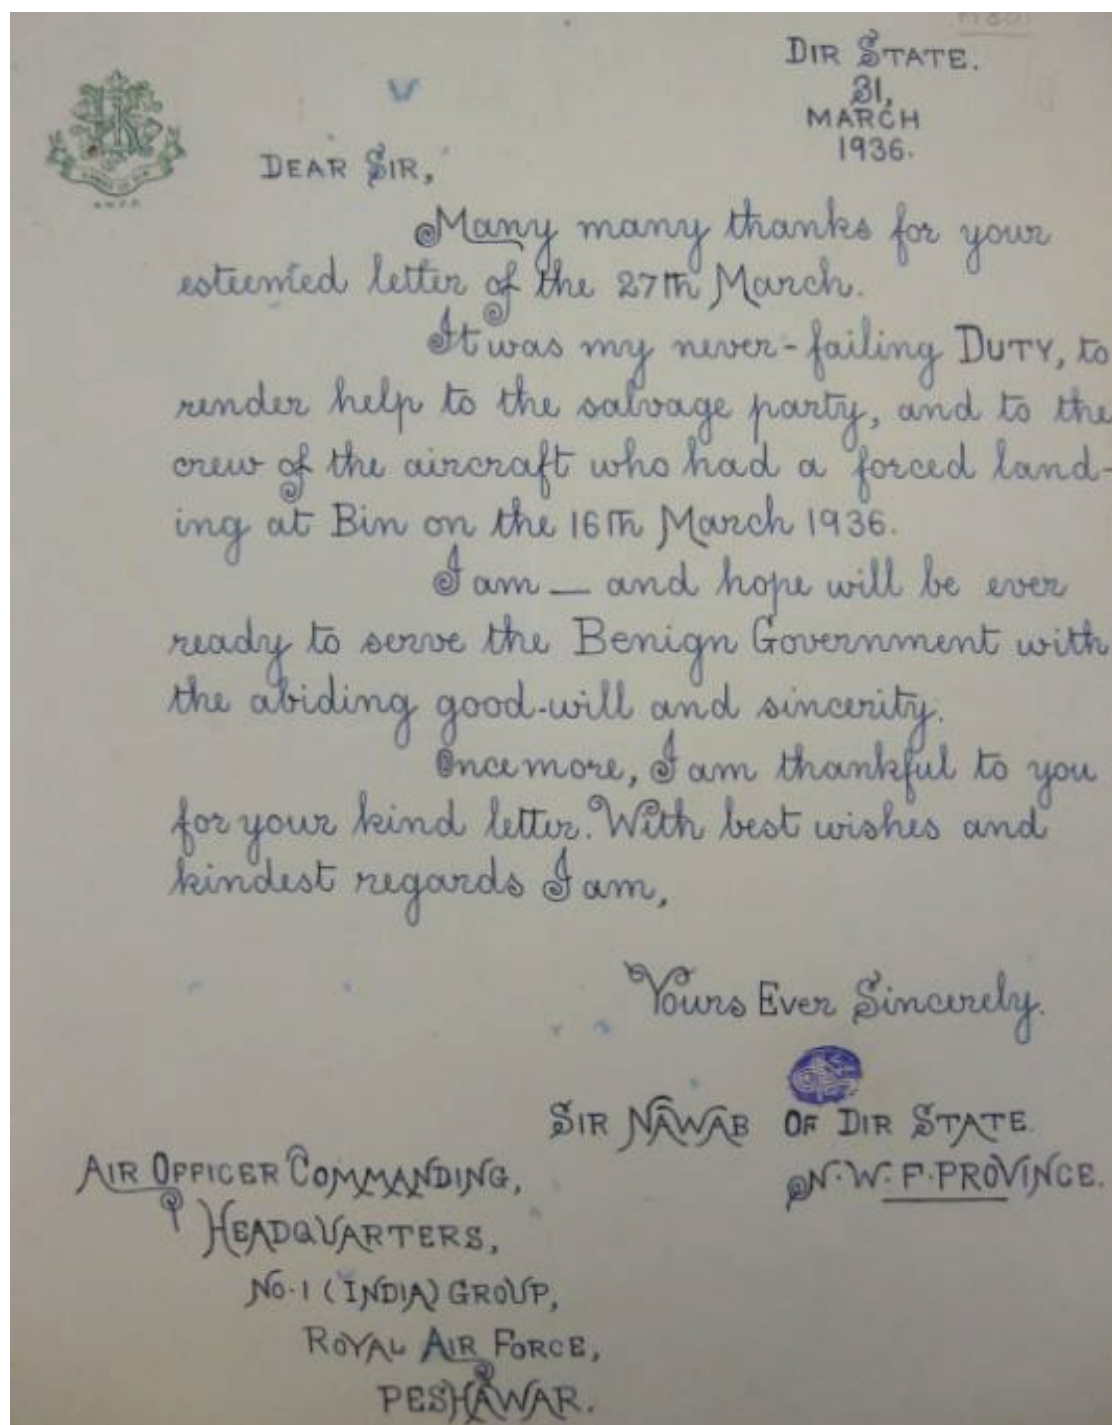 DIR STATE.
31,
MARCH
1936.
DEAR SIR,
Many many thanks for your
esteemed letter of the 27th March.
It was my never-failing DUTY, to
render help to the salvage party, and to the
crew of the aircraft who had a forced land-
ing at Bin on the 16th March 1936.
I am — and hope will be ever
ready to serve the Benign Government with
the abiding good-will and sincerity.
Once more, I am thankful to you
for your kind letter. With best wishes and
kindest regards I am,
Yours Ever Sincerely.
SIR NAWAB OF DIR STATE.
N.W.F. PROVINCE.
AIR OFFICER COMMANDING,
HEADQUARTERS,
No. 1 (INDIA) GROUP,
ROYAL AIR FORCE,
PESHAWAR.